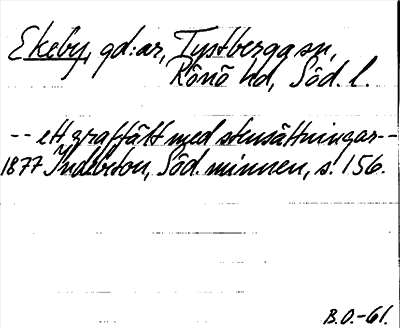 Ekeby, gd:ar, Tystberga sn,
Rönö hd, Söd. l.
-- ett gravfält med stensättningar--
1877 Indebetou, Söd. minnen, s. 156.
B.O.-61.